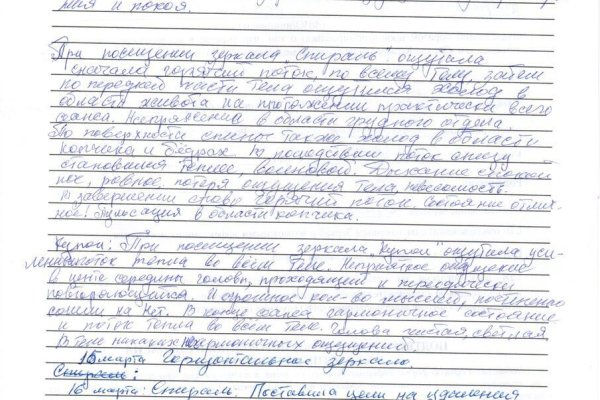 мия и покоя.
При посещении зеркала „Спираль" ощутила
сначала горячий поток, по всему телу, затем
по передней части тела ощущался холод в
области живота на протяжении практически всего
сеанса. Напряжение в области грудного отдела.
По поверхности спины также холод в области
копчика и бедрах. В последствии поток снизу
становился теплее, волновой. Дыхание спокой
ное, ровное, потеря ощущения тела, невесомость.
В завершении снова горячий поток. Состояние отлич-
ное. Пульсация в области копчика.
Купол: При посещении зеркала „Купол" ощутила уси-
ление поток тепла во всем теле. Неприятное ощущение
в центре середины головы, проходящий и периодически
повторяющийся. И огромное кол-во мыслей, постепенно
сошли на нет. В конце сеанса гармоничное состояние
и поток тепла во всем теле. Голова чистая, светлая,
в теле никаких не гармоничных ощущений.
15 марта Горизонтальное зеркало.
Спираль:
16 марта: Спираль. Поставила цели на